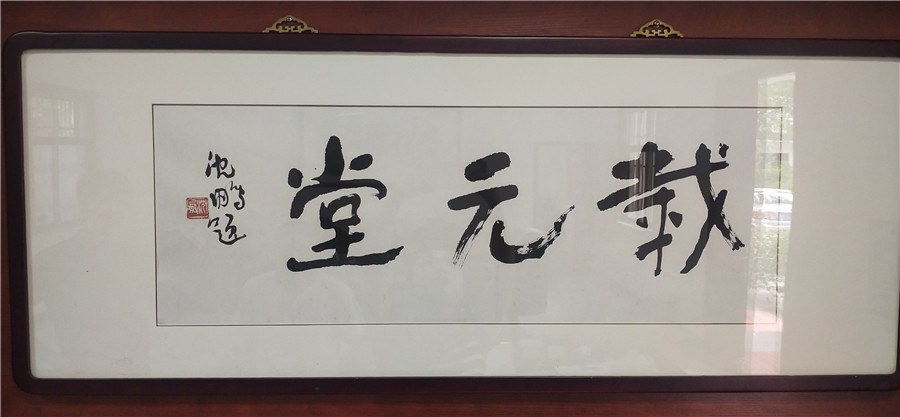 載元堂
沈鹏题